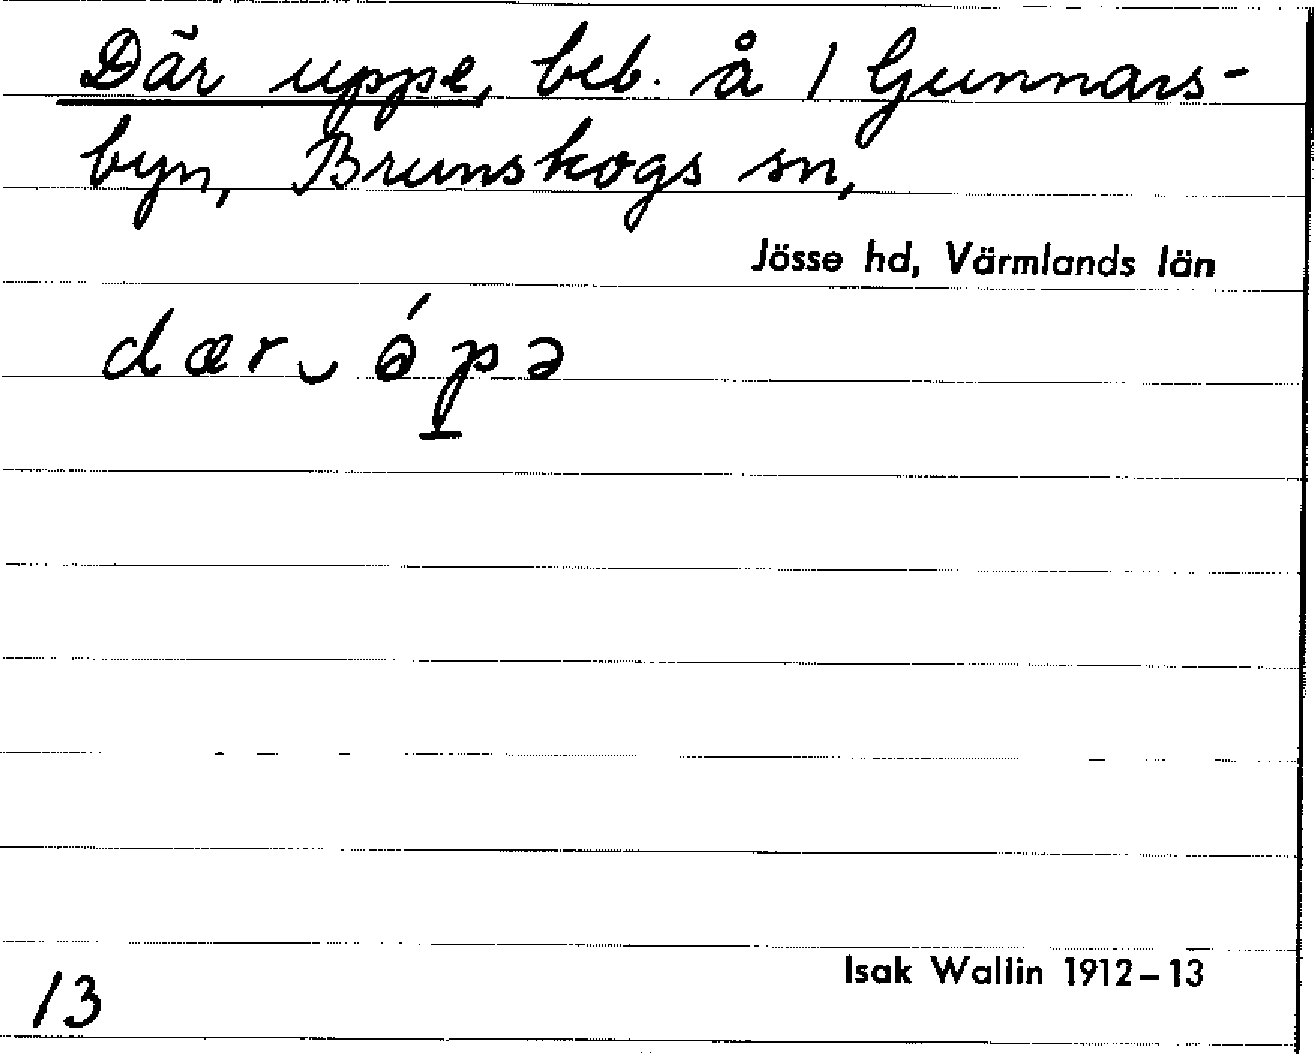 Där uppe, beb. å 1 Gunnars-
byn, Brunskogs sn,
Jösse hd, Värmlands län
dær‿ɵ́pə
Isak Wallin 1912–13
13